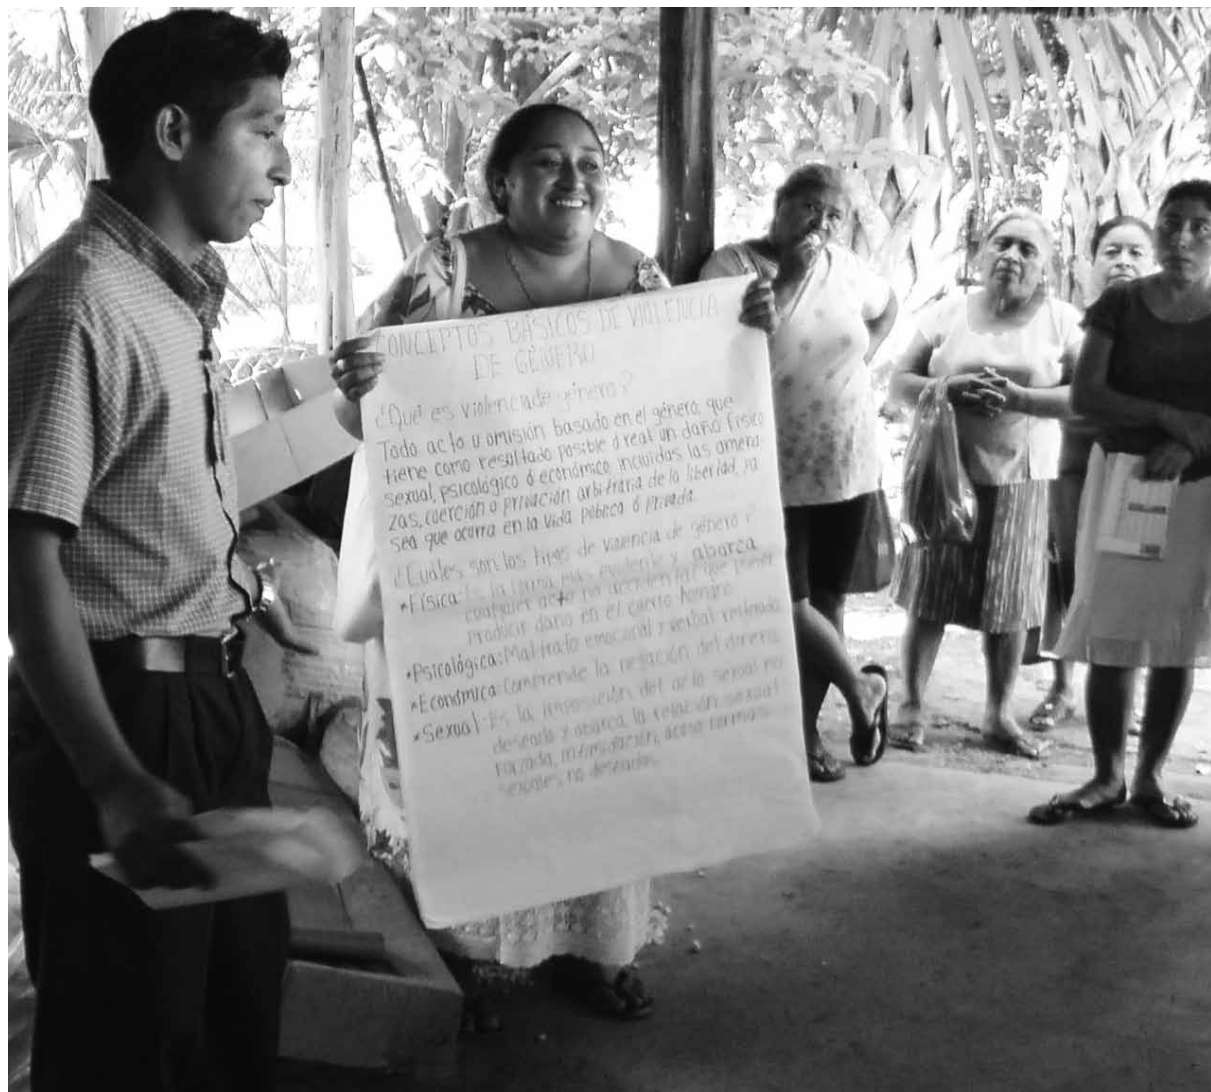 CONCEPTOS BÁSICOS DE VIOLENCIA
DE GÉNERO
¿Qué es violencia de género?
Todo acto u omisión basado en el género, que
tiene como resultado posible ó real un daño físico
sexual, psicológico ó económico incluidas las amena
zas, coerción o privación arbitraria de la libertad, ya
sea que ocurra en la vida pública ó privada.
¿Cuáles son los tipos de violencia de género?
*Física: Es la forma más evidente y abarca
cualquier acto no accidental que
producir daño en el cuerpo humano.
*Psicológica: Maltrato emocional y verbal
*Económica: Comprende la negación del dinero.
*Sexual: Es la imposición del acto sexual no
deseado y abarca la relación sexual
forzada, acoso
sexuales, no deseados.